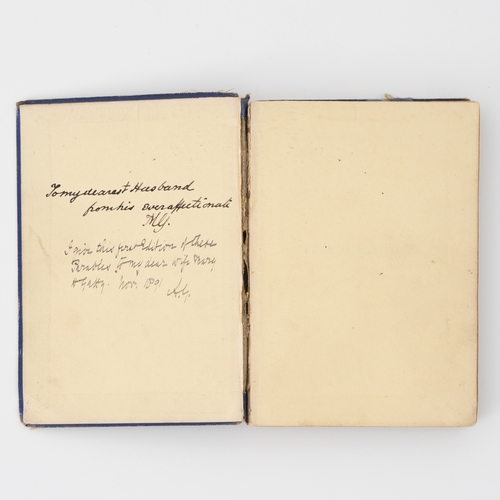 To my dearest Husband
from his ever affectionate
MG.
I give this first Edition of these
Parables to my dear wife Mary
H Gatty. Nov. 1891
A.G.